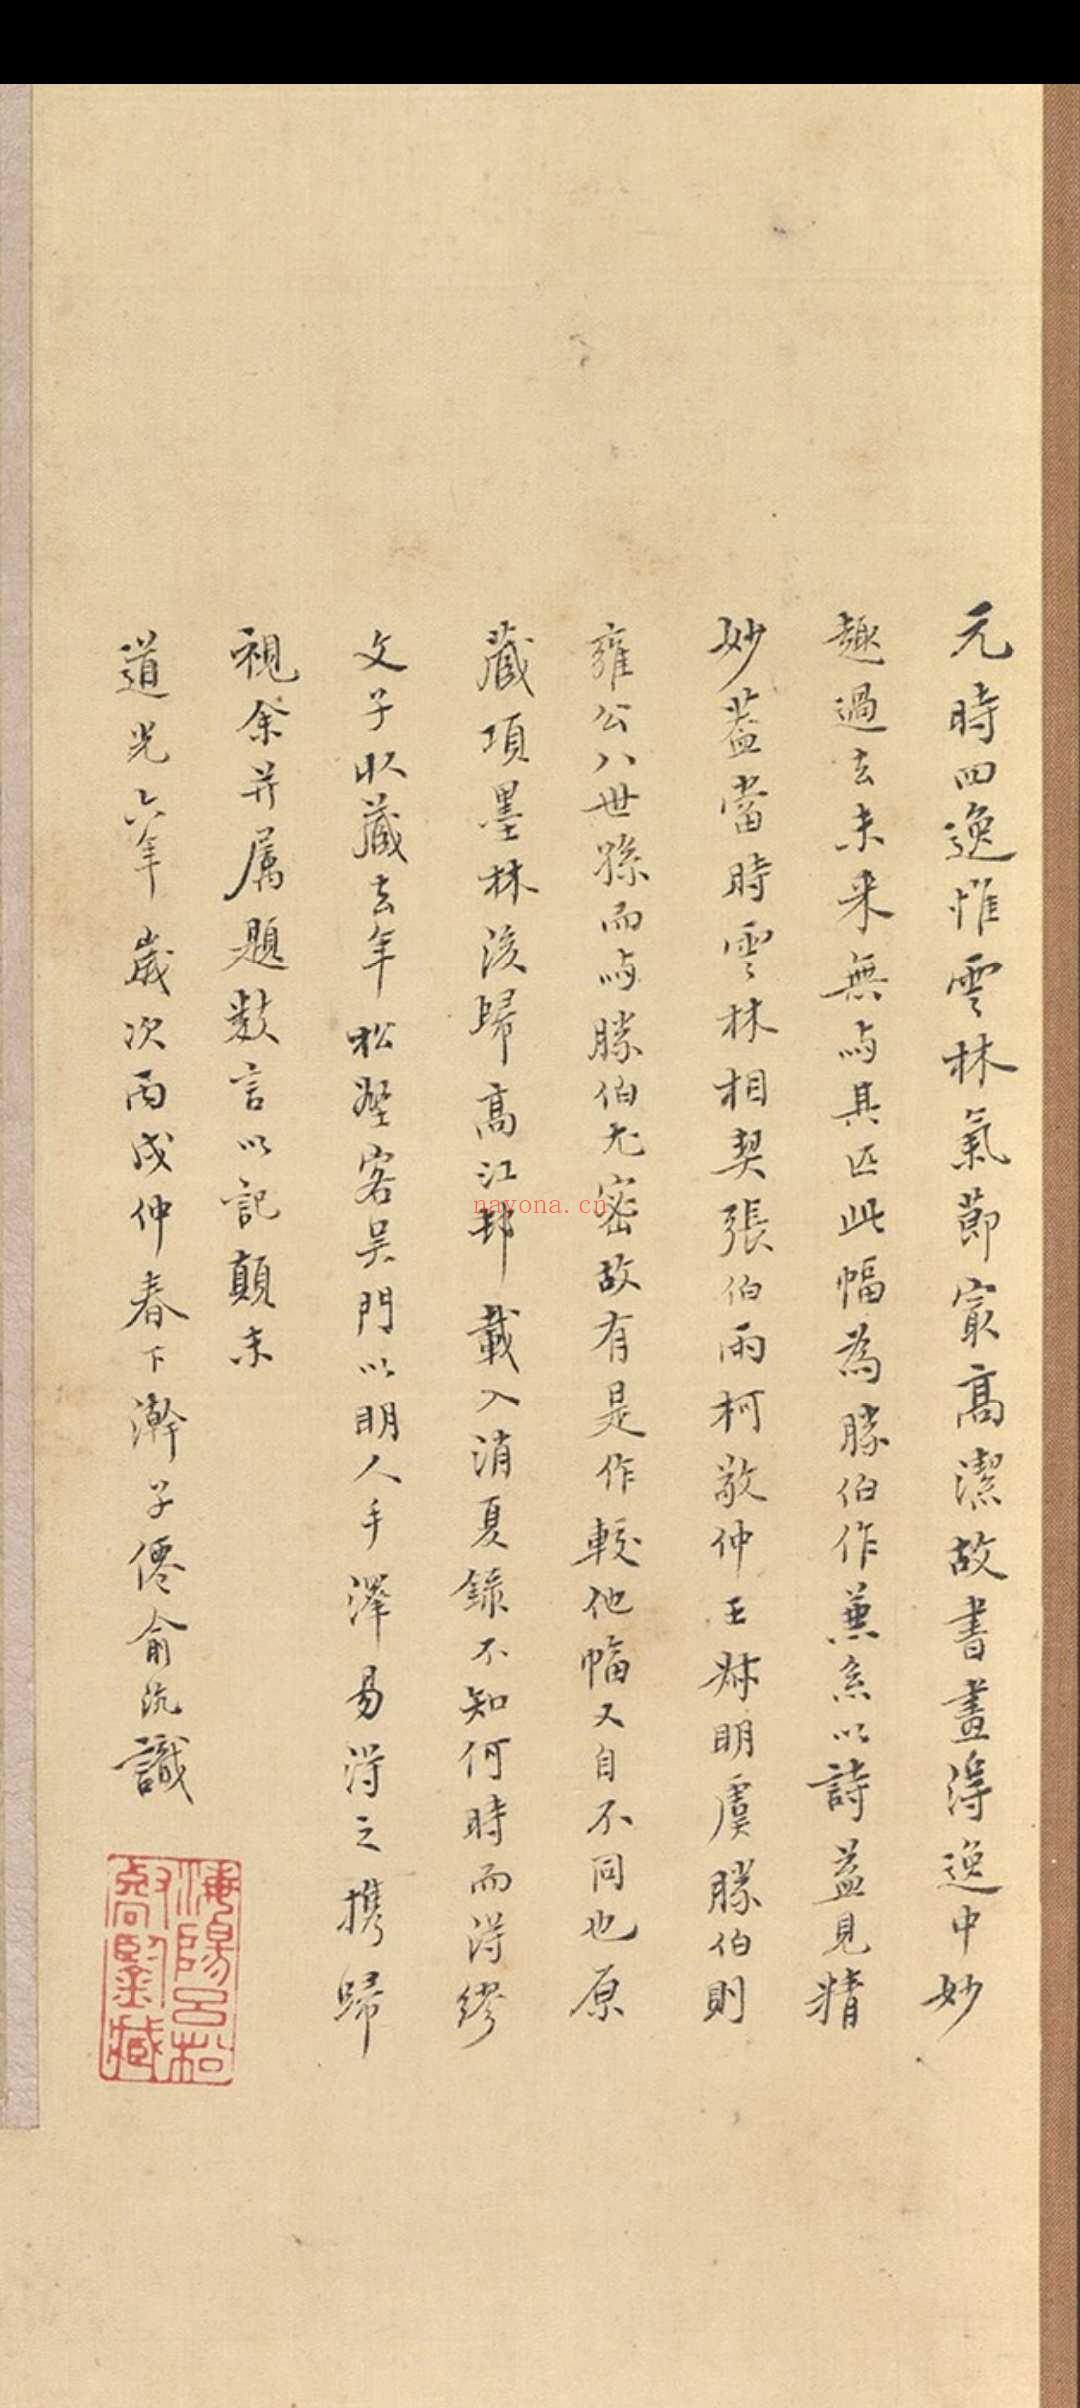 元時四逸惟雲林氣節冣高潔故書畫得逸中妙
趣過去未来無與其匹此幅為勝伯作蒹系以詩益見精
妙葢當時雲林相契張伯雨柯敬仲王叔明虞勝伯則
雍公八世孫而與勝伯尤密故有是作較他幅又自不同也原
藏項墨林後歸高江邨載入消夏錄不知何時而得繆
文子收藏去年松壑客吴門以明人手澤易得之携歸
視余并属題數言以記顛末
道光六年歲次丙戌仲春下澣子僊俞沅識
海陽呂松
喬鑒藏
nayona.cn